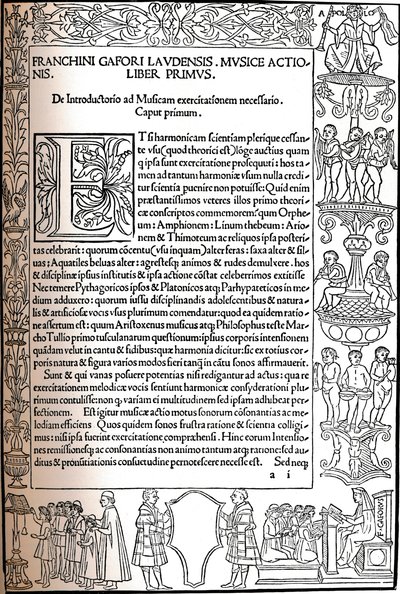 A POL LO
FRANCHINI GAFORI LAVDENSIS. MVSICE ACTIO-
NIS. LIBER PRIMVS.
De Introductorio ad Musicam exercitationem necessario.
Caput primum.
ETsi harmonicam scientiam plerique cessan-
te vsu (quod theorici est) lõge auctius quam
q ipsa sunt exercitatione prosequuti: hos ta-
men ad tantum harmoniæ vsum nulla credi-
tur scientia puenire non potuisse: Quid enim
præstantissimos veteres illos primo theori-
cæ conscriptos commemorem: qum Orphe-
um: Amphionem: Linum thebeum: Ario-
nem & Thimoteum ac reliquos ipsa posteri-
tas celebrarit: quorum cõcentu (vsu inquam) alter feras: saxa alter & sil-
uas: Aquatiles beluas alter: agrestesq; animos & rudes demulxere. hos
& disciplinæ ipsius institutis & ipsa actione cõstat celeberrimos extitisse
Nec temere Pythagoricos ipsos & Platonicos atq; Parhypateticos in me-
dium adduxero: quorum iussu disciplinandis adolescentibus & natura-
lis & artificiosæ vocis vsus plurimum comendatur: quod ea quidem ratio-
ne assertum est: quum Aristoxenus musicus atq; Philosophus teste Mar-
cho Tullio primo tusculanarum questionum: ipsius corporis intensionem:
quãdam velut in cantu & fidibus: quæ harmonia dicitur: sic ex totius cor-
poris natura & figura varios modos fieri tanq̃ in cãtu sonos affirmauerit.
Sunt & qui vanas posuere potentias nisi redigantur ad actus: qua re
exercitationem melodicæ vocis sentiunt harmonicæ consyderationi plu-
rimum contulisse: non q; variam ei multitudinem sed ipsam adhubeat per-
fectionem. Est igitur musicæ actio motus sonorum cõsonantias ac me-
lodiam efficiens Quos quidem sonos frustra ratione & scientia colligi-
mus: nisi ipsa fuerint exercitatione comprahensi. Hinc eorum Intensio-
nes remissionesq; ac consonantias non animo tantum atq; ratione: sed au-
ditus & pronũtiationis consuetudine pernotescere necesse est. Sed neq;
a i